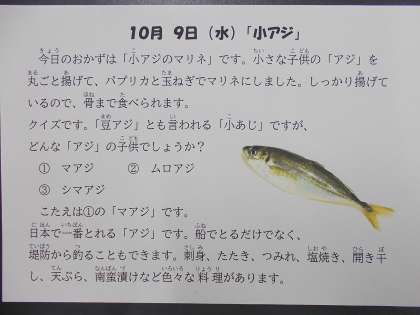 10月 9日（水）「小アジ」
今日のおかずは「小アジのマリネ」です。小さな子供の「アジ」を
丸ごと揚げて、パプリカと玉ねぎでマリネにしました。しっかり揚げて
いるので、骨まで食べられます。
クイズです。「豆アジ」とも言われる「小あじ」ですが、
どんな「アジ」の子供でしょうか？
① マアジ ② ムロアジ
③ シマアジ
こたえは①の「マアジ」です。
日本で一番とれる「アジ」です。船でとるだけでなく、
堤防から釣ることもできます。刺身、たたき、つみれ、塩焼き、開き干
し、天ぷら、南蛮漬けなど色々な料理があります。